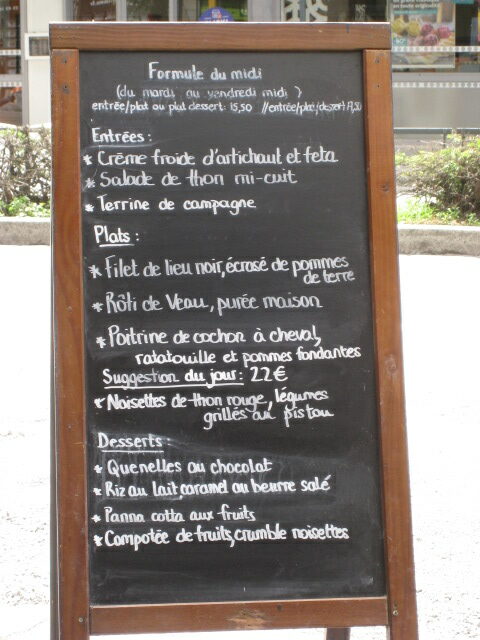 Formule du midi
(du mardi au vendredi midi)
entrée/plat ou plat dessert: 15,50 //entrée/plat/dessert 19,50
Entrées :
* Crème froide d'artichaut et feta
* Salade de thon mi-cuit
* Terrine de campagne
Plats :
* Filet de lieu noir, écrasé de pommes
de terre
* Rôti de Veau, purée maison
* Poitrine de cochon à cheval,
ratatouille et pommes fondantes
Suggestion du jour : 22€
* Noisettes de thon rouge, légumes
grillés au pistou
Desserts :
* Quenelles au chocolat
* Riz au lait caramel au beurre salé
* Panna cotta aux fruits
* Compotée de fruits, crumble noisettes